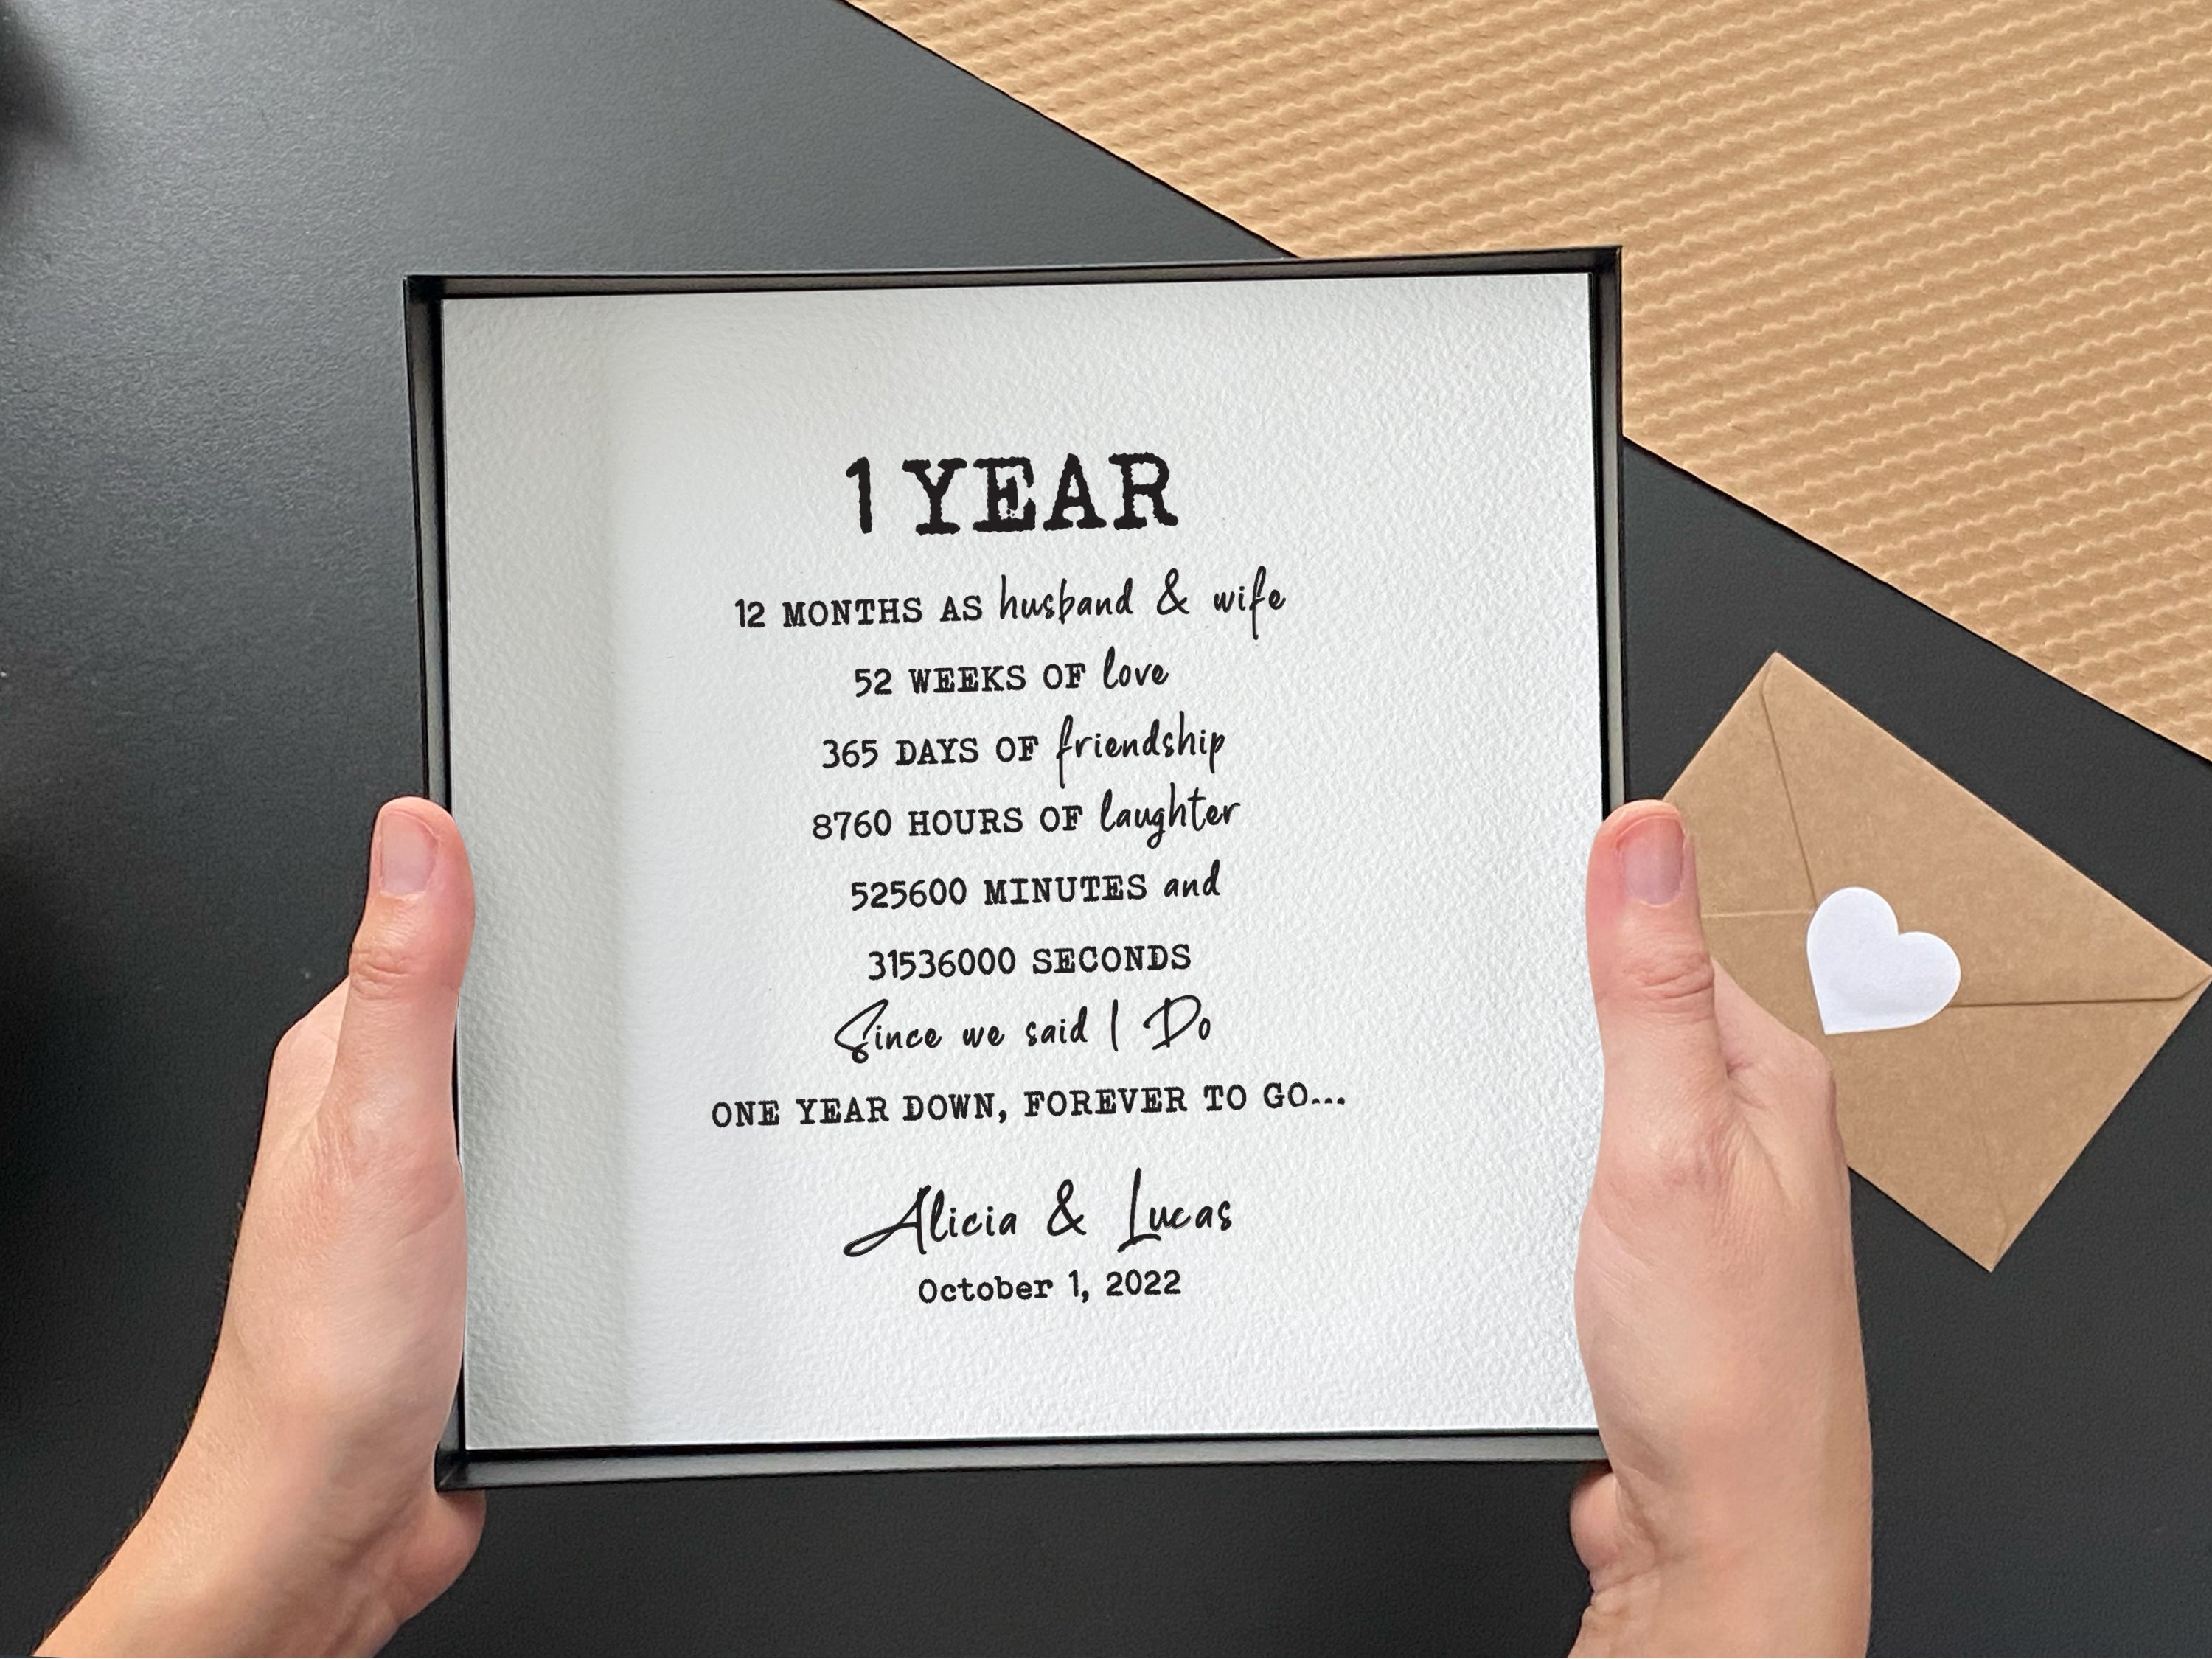 1 YEAR
12 MONTHS AS husband & wife
52 WEEKS OF love
365 DAYS OF friendship
8760 HOURS OF laughter
525600 MINUTES and
31536000 SECONDS
Since we said I Do
ONE YEAR DOWN, FOREVER TO GO...
Alicia & Lucas
October 1, 2022